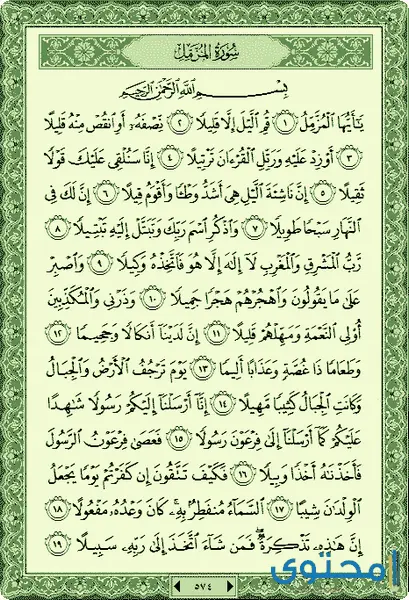 سُورَةُ المُزَّمِّلِ
بِسْمِ ٱللَّهِ ٱلرَّحْمَٰنِ ٱلرَّحِيمِ
يَٰٓأَيُّهَا ٱلْمُزَّمِّلُ ١ قُمِ ٱلَّيْلَ إِلَّا قَلِيلًا ٢ نِّصْفَهُۥٓ أَوِ ٱنقُصْ مِنْهُ قَلِيلًا
٣ أَوْ زِدْ عَلَيْهِ وَرَتِّلِ ٱلْقُرْءَانَ تَرْتِيلًا ٤ إِنَّا سَنُلْقِى عَلَيْكَ قَوْلًا
ثَقِيلًا ٥ إِنَّ نَاشِئَةَ ٱلَّيْلِ هِىَ أَشَدُّ وَطْـًٔا وَأَقْوَمُ قِيلًا ٦ إِنَّ لَكَ فِى
ٱلنَّهَارِ سَبْحًا طَوِيلًا ٧ وَٱذْكُرِ ٱسْمَ رَبِّكَ وَتَبَتَّلْ إِلَيْهِ تَبْتِيلًا ٨
رَّبُّ ٱلْمَشْرِقِ وَٱلْمَغْرِبِ لَآ إِلَٰهَ إِلَّا هُوَ فَٱتَّخِذْهُ وَكِيلًا ٩ وَٱصْبِرْ
عَلَىٰ مَا يَقُولُونَ وَٱهْجُرْهُمْ هَجْرًا جَمِيلًا ١٠ وَذَرْنِى وَٱلْمُكَذِّبِينَ
أُو۟لِى ٱلنَّعْمَةِ وَمَهِّلْهُمْ قَلِيلًا ١١ إِنَّ لَدَيْنَآ أَنكَالًا وَجَحِيمًا ١٢
وَطَعَامًا ذَا غُصَّةٍ وَعَذَابًا أَلِيمًا ١٣ يَوْمَ تَرْجُفُ ٱلْأَرْضُ وَٱلْجِبَالُ
وَكَانَتِ ٱلْجِبَالُ كَثِيبًا مَّهِيلًا ١٤ إِنَّآ أَرْسَلْنَآ إِلَيْكُمْ رَسُولًا شَٰهِدًا
عَلَيْكُمْ كَمَآ أَرْسَلْنَآ إِلَىٰ فِرْعَوْنَ رَسُولًا ١٥ فَعَصَىٰ فِرْعَوْنُ ٱلرَّسُولَ
فَأَخَذْنَٰهُ أَخْذًا وَبِيلًا ١٦ فَكَيْفَ تَتَّقُونَ إِن كَفَرْتُمْ يَوْمًا يَجْعَلُ
ٱلْوِلْدَٰنَ شِيبًا ١٧ ٱلسَّمَآءُ مُنفَطِرٌۢ بِهِۦ ۚ كَانَ وَعْدُهُۥ مَفْعُولًا ١٨
إِنَّ هَٰذِهِۦ تَذْكِرَةٌ ۖ فَمَن شَآءَ ٱتَّخَذَ إِلَىٰ رَبِّهِۦ سَبِيلًا ١٩
٥٧٤
امحتوى